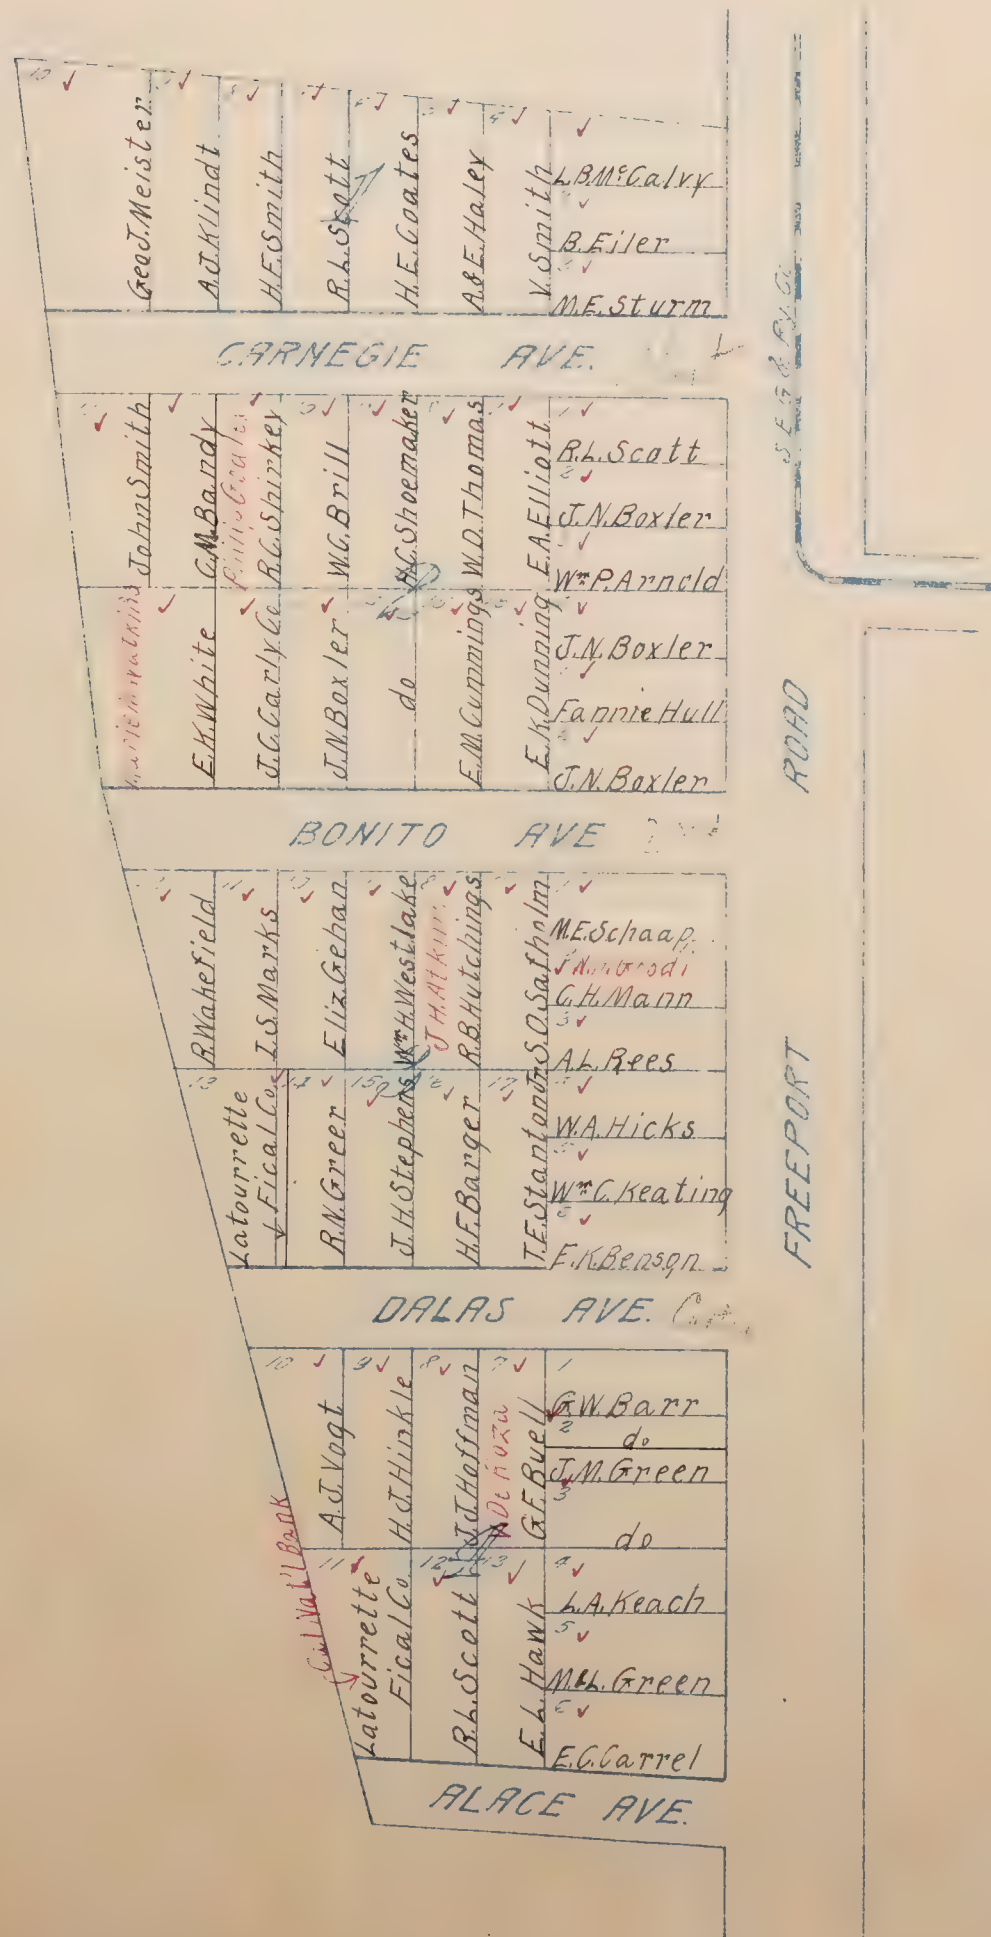 10
Geo J. Meister
A.J. Klindt
H.E. Smith
R.L. Scott
H.E. Coates
A&E. Haley
V. Smith
L.B. McCalvy
B. Eiler
M.E. Sturm
CARNEGIE AVE.
S E G & Ry Co
John Smith
C.M. Bandy
R.C. Shirkey
W.C. Brill
H.C. Shoemaker
W.D. Thomas
E.A. Elliott
1
R.L. Scott
2
J.N. Boxler
Wm P. Arnold
E.K. White
J.C. Carly Co
J.N. Boxler
do
E.M. Cummings
E.K. Dunning
J.N. Boxler
Fannie Hull
J.N. Boxler
BONITO AVE
R. Wakefield
I.S. Marks
Eliz. Gehan
Wm H. Westlake
J.H. Atkin
R.B. Hutchings
S.O. Satholm
M.E. Schaap
C.H. Mann
3
A.L. Rees
13
Latourrette
Fical Co.
14
R.N. Greer
15
J.H. Stephens
16
H.F. Barger
17
T.E. Stanton Jr
W.A. Hicks
Wm C. Keating
E.K. Benson
DALAS AVE.
FREEPORT ROAD
10
A.J. Vogt
9
H.J. Hinkle
8
J.J. Hoffman
7
G.F. Buell
1
G.W. Barr
2
do
J.M. Green
3
do
Cal. Nat'l Bank
11
Latourrette
Fical Co.
12
R.L. Scott
13
E.L. Hawk
4
L.A. Keach
5
M.&L. Green
6
E.C. Carrel
ALACE AVE.